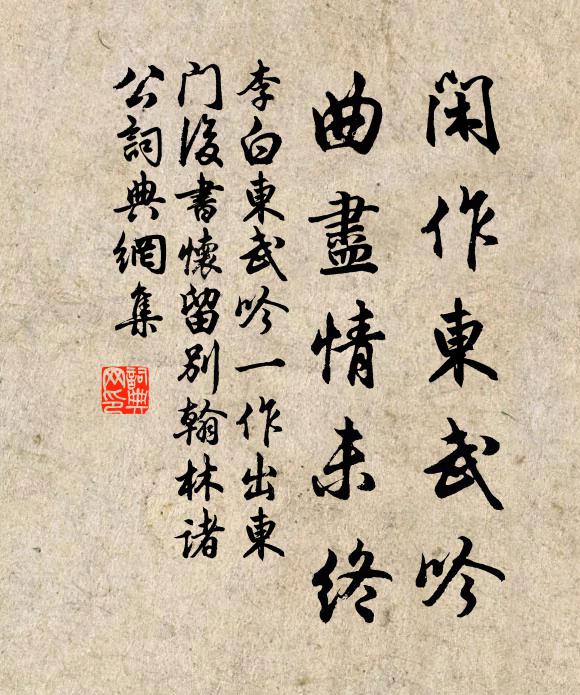 閑作東武吟
曲盡情未終
李白東武吟一作出東
门後書懷留别翰林诸
公詞典網集
詞典
网印